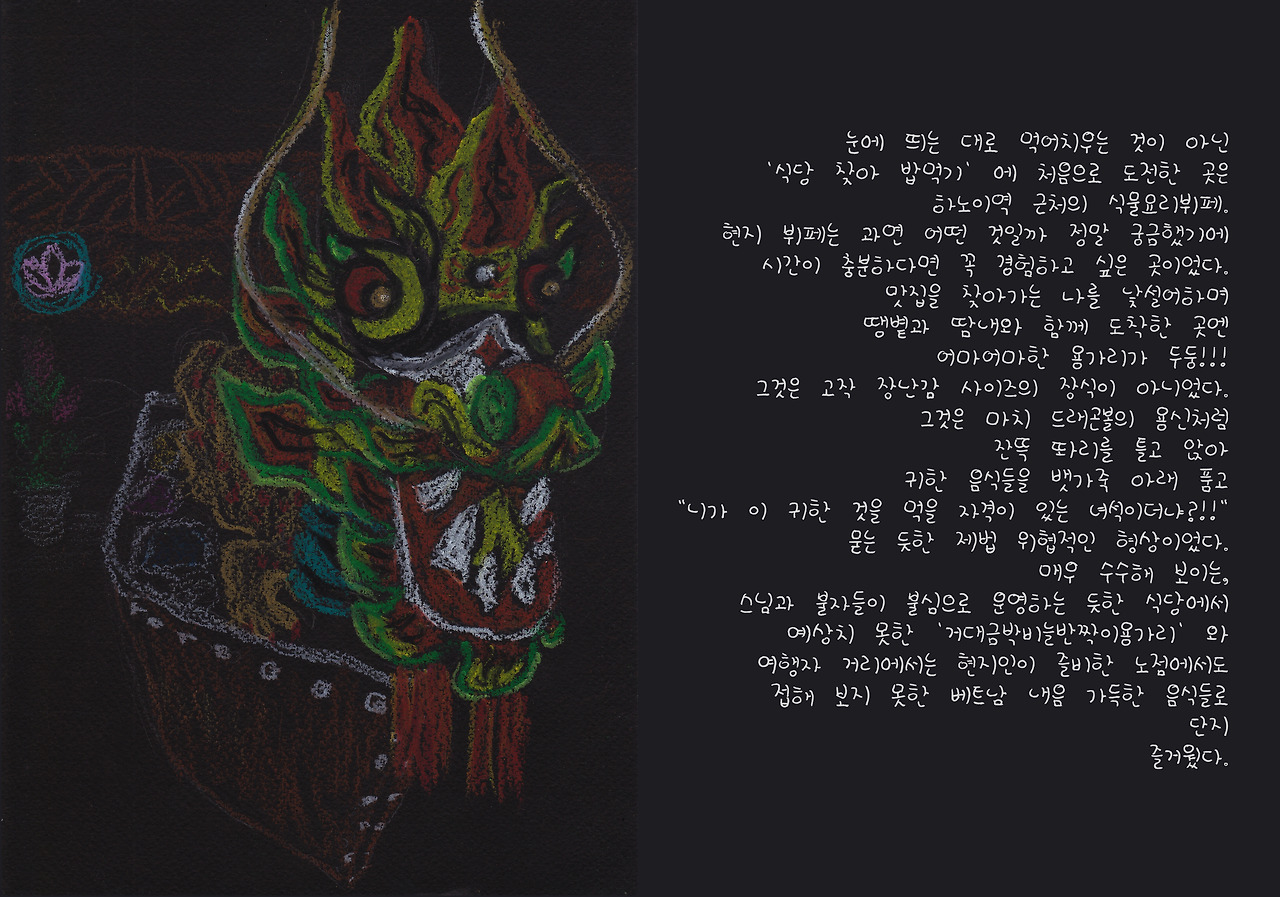 눈에 띄는 대로 먹어치우는 것이 아닌
'식당 찾아 밥먹기' 에 처음으로 도전한 곳은
하노이역 근처의 식물요리뷔페.
현지 뷔페는 과연 어떤 것일까 정말 궁금했기에
시간이 충분하다면 꼭 경험하고 싶은 곳이었다.
맛집을 찾아가는 나를 낯설어하며
땡볕과 땀내와 함께 도착한 곳엔
어마어마한 용가리가 두둥!!!
그것은 고작 장난감 사이즈의 장식이 아니었다.
그것은 마치 드래곤볼의 용신처럼
잔뜩 똬리를 틀고 앉아
귀한 음식들을 뱃가죽 아래 품고
"니가 이 귀한 것을 먹을 자격이 있는 녀석이더냐?!!"
묻는 듯한 제법 위협적인 형상이었다.
매우 수수해 보이는,
스님과 불자들이 불심으로 운영하는 듯한 식당에서
예상치 못한 '거대금박비늘반짝이용가리' 와
여행자 거리에서는 현지인이 즐비한 노점에서도
접해 보지 못한 베트남 내음 가득한 음식들로
단지
즐거웠다.